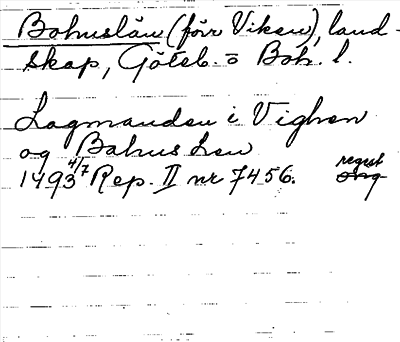 Bohuslän (förr Viken), land-
skap, Göteb. o Boh. l.
Lagmanden i Vighen
og Bahus Len
1493 4/7 Rep. II nr 7456. regest
orig